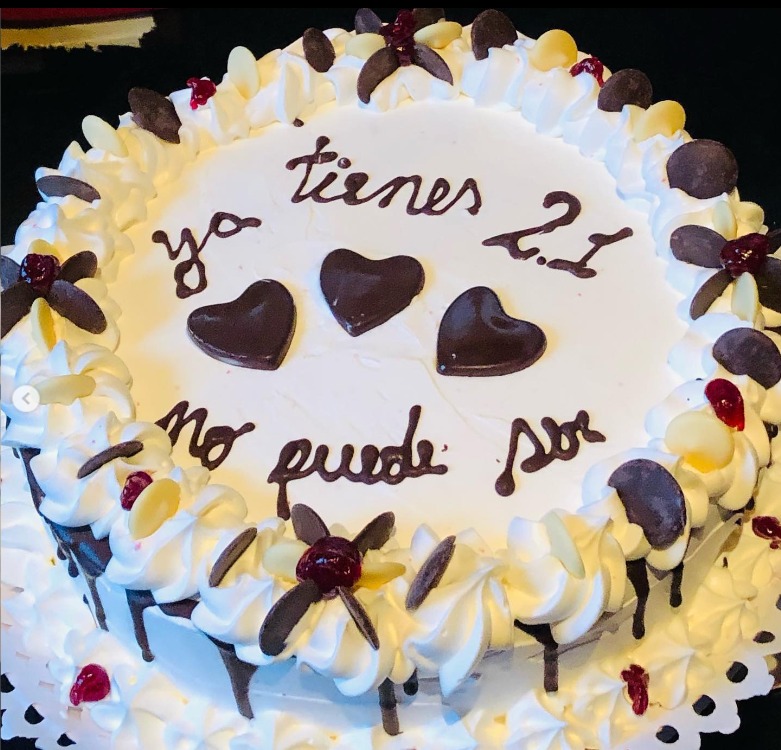 ya tienes 21
No puede ser